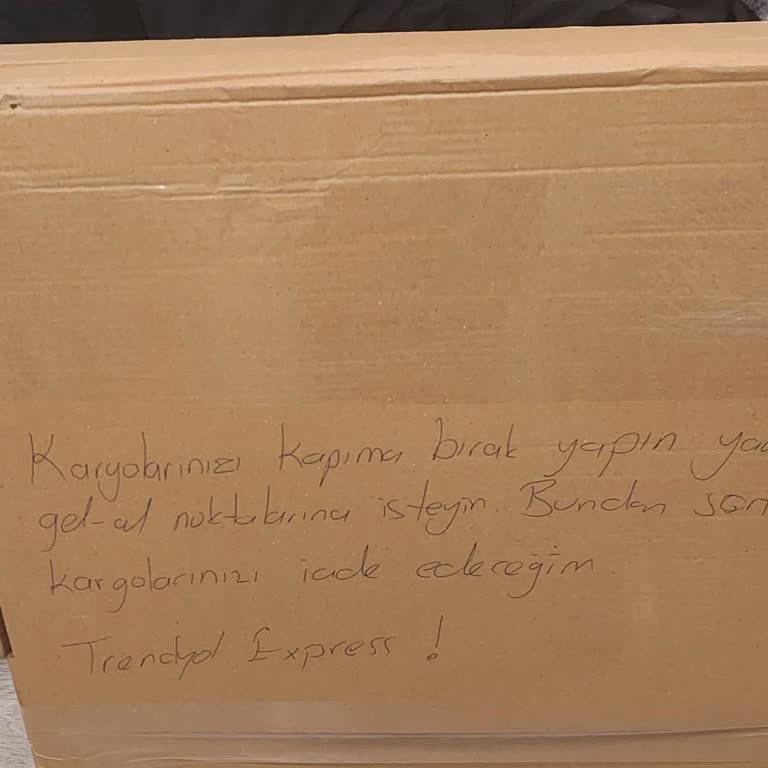 Kargolarınızı kapıma bırak yapın
gel-al noktalarına isteyin. Bundan
kargolarınızı iade edeceğim.
Trendyol Express !